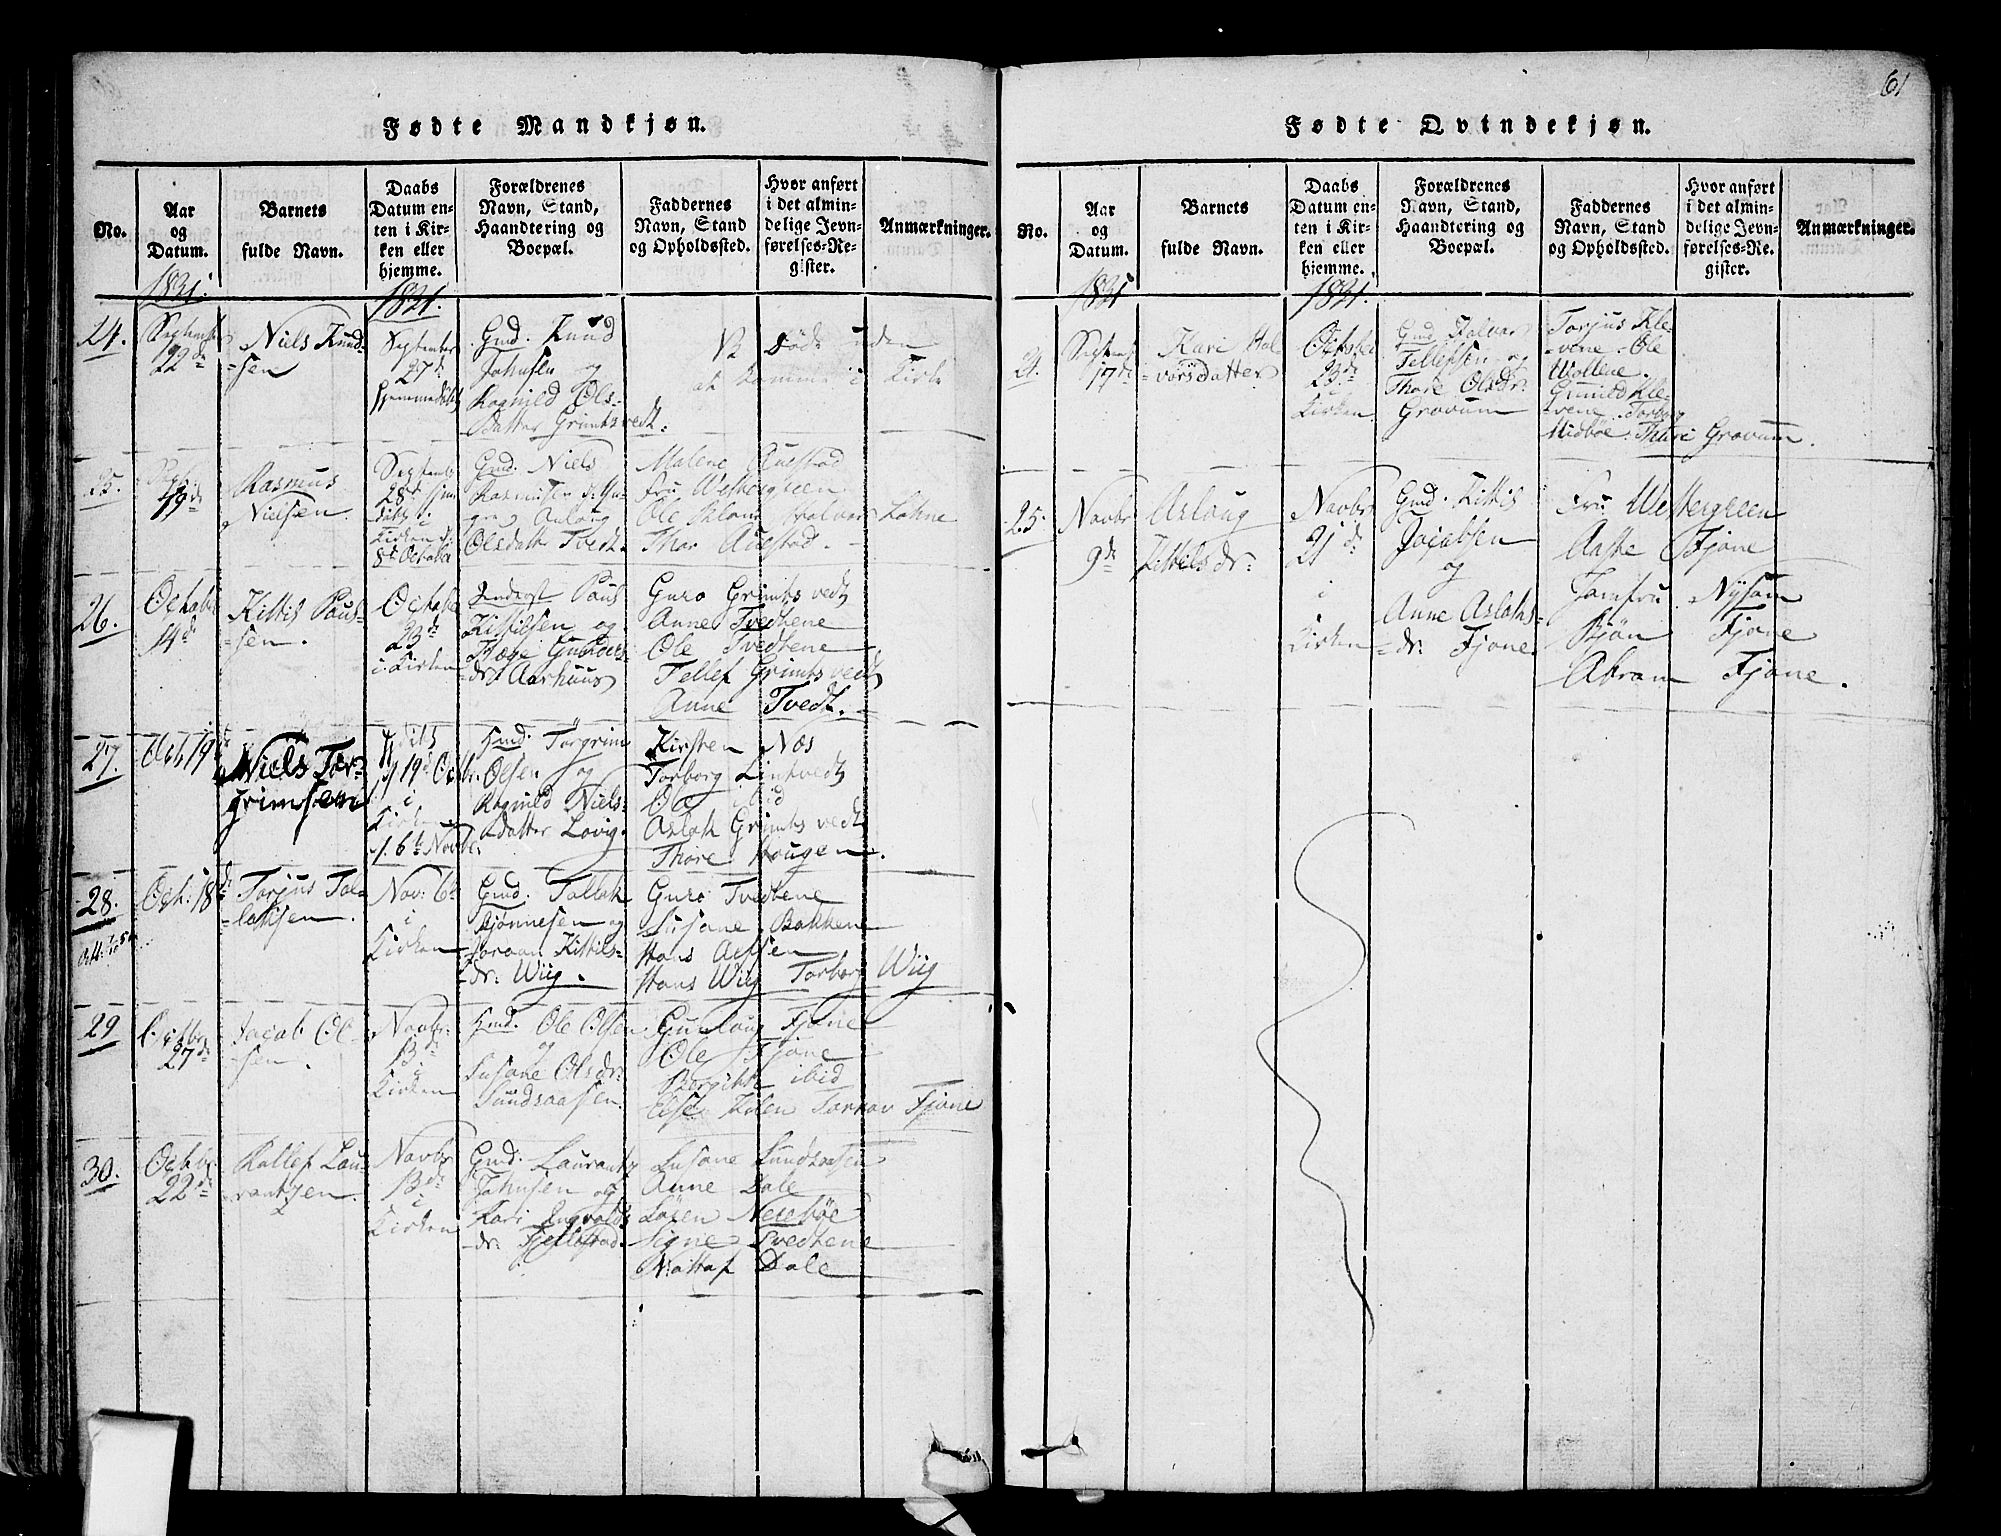 61
Fødte Mandkjøn.
No.
Aar
og
Datum.
Barnets
fulde Navn.
Daabs
Datum en-
ten i Kir-
ken eller
hjemme.
Forældrenes
Navn, Stand,
Haandtering og
Boepæl.
Faddernes
Navn, Stand
og Opholdssted.
Hvor anført
i det almin-
delige Jevn-
førelses-Re-
gister.
Anmærkninger.
1821.
1821.
24.
22de
Niels Knud-
-sen
September
27de
Gmd. Knud
Johnsen og
Ragnild Ols-
Datter Grimtsvedt.
døde uden
at komme i Kirke
25.
19de
Rasmus
Nielsen.
28de
Kirken d.
8de October
Gmd. Niels
Rasmusen
Asloug
Olsdatter Tvedt.
Malene Auestad
Fru Westergreen
Ole Halvor Lohne
Thor Auestad.
26.
October
14de
Kittil Pauls-
-sen.
October
23de
i Kirken
Paul
Kittilsen og
Gunders-
-dr. Aarhuus
Guro Grimtsvedt
Anne Tvedtene
Ole Tvedtene
Tellef Grimtsvedt
Anne Tvedt.
27.
Octb. 19de
Niels Tor-
grimsen
19de Octbr.
i
Kirken
6te Novbr.
Gmd. Torgrim
Olsen og
Ragnild Niels-
datter Lovig.
Kirsten Næs
Torborg Lindtvedt
Ole ibid
Aslak Grimtsvedt
Thore Hougen.
28.
Oct. 18de
Torjus Tal-
-laksen.
Nov: 6te
i
Kirken
Gmd. Tallak
Bjønnesen og
Joraan Kittils-
-dr: Wiig.
Guro Tvedtene
Susane Bakkene
Hans
Hans Wiig Torborg Wiig
29
Octbr.
27de
Jacob Ol-
-sen.
Novbr.
13de
i
Kirken
Gmd. Ole Olsen
og
Susane Olsdr:
Sundsaasen.
Gunloug Fjone
Ole Fjone
Bergitte ibid
Else Kilen Torkav Fjone
30.
Octbr.
22de
Rollef Lau-
-rantzen.
Novbr
13de
i
Kirken
Gmd. Laurantz
Johnsen og
Kari Ingvolds-
-dr: Fjellestad.
Susane Sundsaasen
Anne Dale
Søren Nesebøe
Signe Tvedtene
Nottof Dale
Fødte Qvindekjøn.
No.
Aar
og
Datum.
Barnets
fulde Navn.
Daabs
Datum en-
ten i Kir-
ken eller
hjemme.
Forældrenes
Navn, Stand,
Haandtering og
Boepæl.
Faddernes
Navn, Stand
og Opholdssted.
Hvor anført
i det almin-
delige Jevn-
førelses-Re-
gister.
Anmærkninger.
1821
1821.
17de
Kari Hal-
-vorsdatter
October
23de
i
Kirken
Gmd Halvor
Tellefsen og
Thore Olsdr:
Grovum
Torjus Kle-
-vene. Ole
Wollene.
Gunild Kle-
-vene. Torborg
Midbøe. Thari Grovum.
25.
Novbr
9de
Asloug
Kittilsdr:
Novbr
21de
i
Kirken
Gmd. Kittil
Jacobsen
og
Anne Aslaks-
-dr. Fjone
Fru Westergreen
Aaste Fjone
Jomfru Nysom
Bjøn Fjone
Abram Fjone.